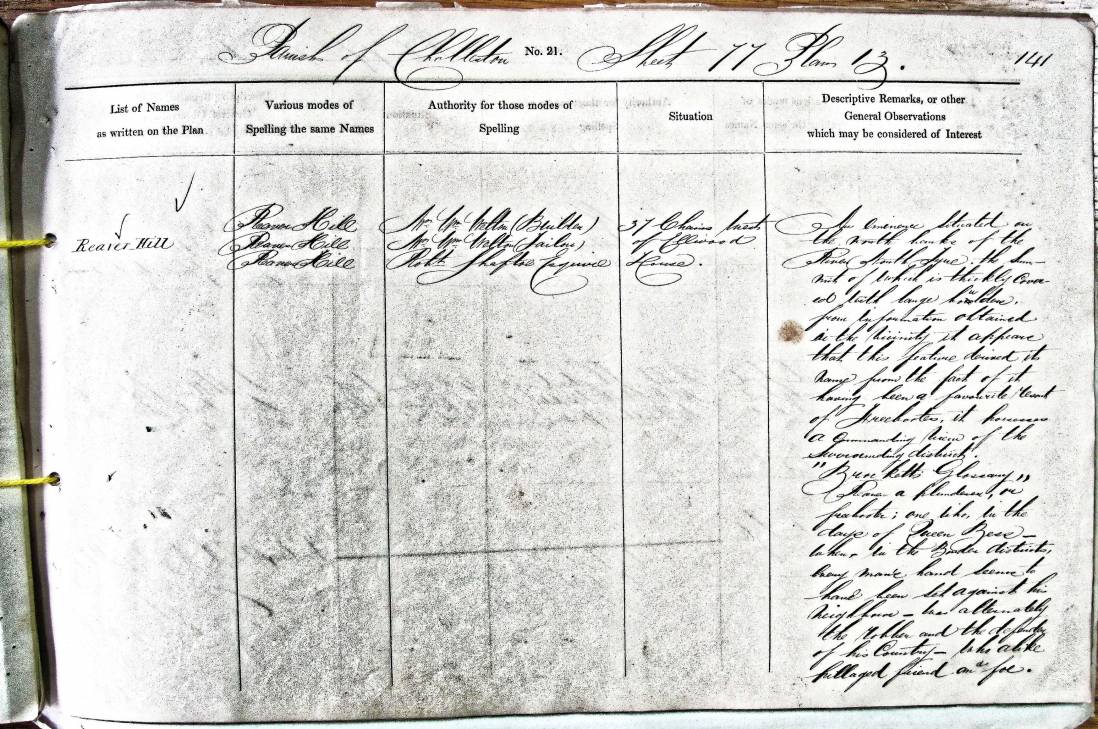 Parish of Chollerton No. 21. Sheet 77 Plan 13. 141
List of Names
as written on the Plan
Various modes of
Spelling the same Names
Authority for those modes of
Spelling
Situation
Descriptive Remarks, or other
General Observations
which may be considered of Interest
Reaver Hill
Reaver Hill
Reaver Hill
Reaver Hill
Mr. Wm. Walton (Builder)
Mr. Wm. Walton (Tailor)
Robt. Shaftoe Esquire
37 Chains West
of Ellwood
House.
An eminence situated on
the North banks of the
River North Tyne. the sum-
mit of which is thickly cover-
ed with large boulders.
from information obtained
in the vicinity it appears
that this feature derived its
name from the fact of it
having been a favourite resort
of Freebooters, it possesses
a commanding View of the
surrounding district.
"Brocketts Glossary"
Reaver a plunderer, or
freebooter; one who, in the
days of Queen Bess -
when, in the Border districts,
every man's hand seems to
have been set against his
neighbour - was alternately
the robber and the defender
of his Country - who alike
pillaged friend and foe.